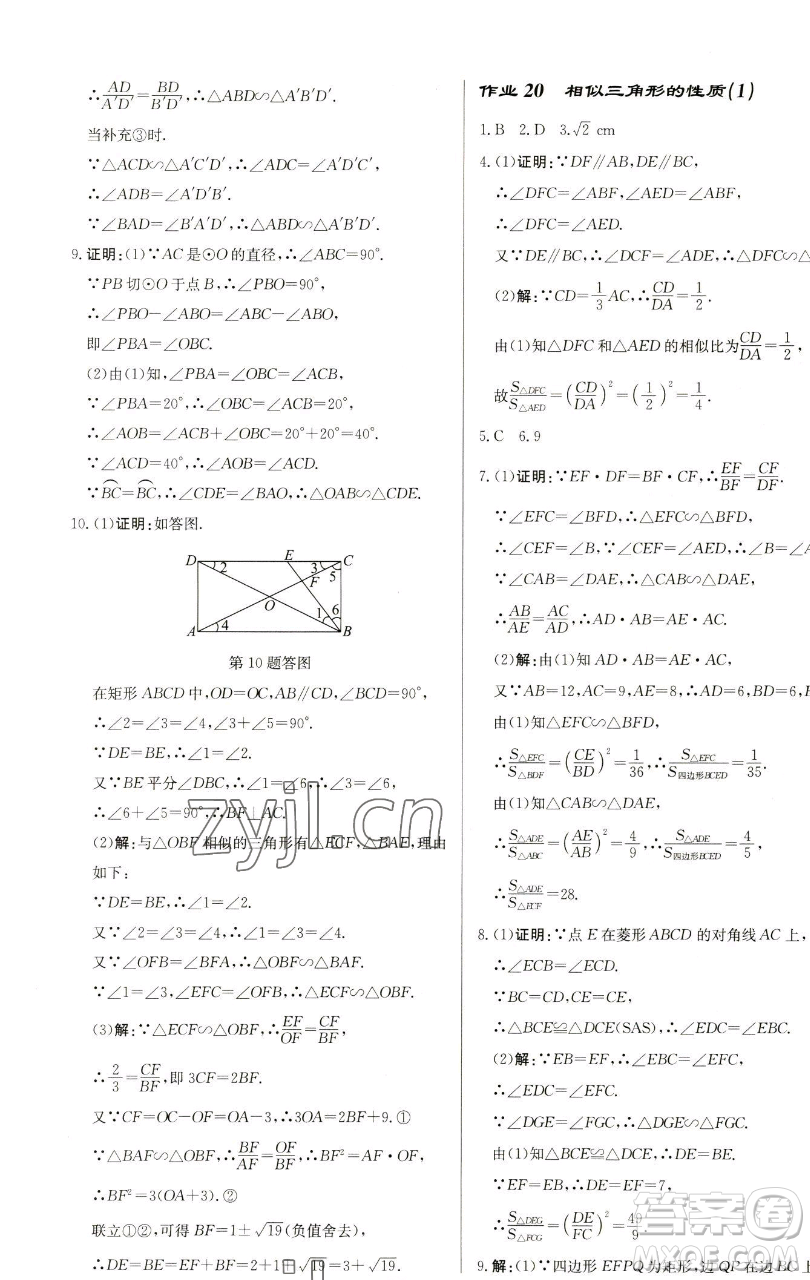 ∴AD/A′D′=BD/B′D′,∴△ABD∽△A′B′D′.
当补充③时.
∵△ACD∽△A′C′D′,∴∠ADC=∠A′D′C′,
∴∠ADB=∠A′D′B′.
∵∠BAD=∠B′A′D′,∴△ABD∽△A′B′D′.
9.证明:(1)∵AC是⊙O的直径,∴∠ABC=90°.
∵PB切⊙O于点B,∴∠PBO=90°,
∴∠PBO-∠ABO=∠ABC-∠ABO,
即∠PBA=∠OBC.
(2)由(1)知,∠PBA=∠OBC=∠ACB,
∵∠PBA=20°,∴∠OBC=∠ACB=20°,
∴∠AOB=∠ACB+∠OBC=20°+20°=40°.
∵∠ACD=40°,∴∠AOB=∠ACD.
∵BC⌒=BC⌒,∴∠CDE=∠BAO,∴△OAB∽△CDE.
10.(1)证明:如答图.
D E C
2 3 5
F
O
1 6
4
A B
第10题答图
在矩形ABCD中,OD=OC,AB∥CD,∠BCD=90°,
∴∠2=∠3=∠4,∠3+∠5=90°.
∵DE=BE,∴∠1=∠2.
又∵BE平分∠DBC,∴∠1=∠6,∴∠3=∠6,
∴∠6+∠5=90°,∴BF⊥AC.
(2)解:与△OBF相似的三角形有△ECF,△BAF,理由
如下:
∵DE=BE,∴∠1=∠2.
又∵∠2=∠4,∴∠1=∠4.
又∵∠OFB=∠BFA,∴△OBF∽△BAF.
∵∠1=∠3,∠EFC=∠OFB,∴△ECF∽△OBF.
(3)解:∵△ECF∽△OBF,∴EF/OF=CF/BF,
∴2/3=CF/BF,即3CF=2BF.
又∵CF=OC-OF=OA-3,∴3OA=2BF+9.①
∵△BAF∽△OBF,∴BF/AF=OF/BF,∴BF²=AF·OF,
∴BF²=3(OA+3).②
联立①②,可得BF=1±√19(负值舍去),
∴DE=BE=EF+BF=2+1+√19=3+√19.
作业20 相似三角形的性质(1)
1.B 2.D 3.√2 cm
4.(1)证明:∵DF∥AB,DE∥BC,
∴∠DFC=∠ABF,∠AED=∠ABF,
∴∠DFC=∠AED.
又∵DE∥BC,∴∠DCF=∠ADE,∴△DFC∽△
(2)解:∵CD=1/3AC,∴CD/DA=1/2.
由(1)知△DFC和△AED的相似比为CD/DA=1/2,
故S△DFC/S△AED=(CD/DA)²=(1/2)²=1/4.
5.C 6.9
7.(1)证明:∵EF·DF=BF·CF,∴EF/BF=CF/DF.
∵∠EFC=∠BFD,∴△EFC∽△BFD,
∴∠CEF=∠B,∵∠CEF=∠AED,∴∠B=∠A
∵∠CAB=∠DAE,∴△CAB∽△DAE,
∴AB/AE=AC/AD,∴AD·AB=AE·AC.
(2)解:由(1)知AD·AB=AE·AC.
又∵AB=12,AC=9,AE=8,∴AD=6,BD=6,
由(1)知△EFC∽△BFD,
∴S△EFC/S△BDF=(CE/BD)²=1/36,∴S△EFC/S四边形BCED=1/35.
由(1)知△CAB∽△DAE,
∴S△ADE/S△ABC=(AE/AB)²=4/9,∴S△ADE/S四边形BCED=4/5,
∴S△ADE/S△ECF=28.
8.(1)证明:∵点E在菱形ABCD的对角线AC上,
∴∠ECB=∠ECD.
∵BC=CD,CE=CE,
∴△BCE≌△DCE(SAS),∴∠EDC=∠EBC.
(2)解:∵EB=EF,∴∠EBC=∠EFC,
∴∠EDC=∠EFC.
∵∠DGE=∠FGC,∴△DGE∽△FGC.
由(1)知△BCE≌△DCE,∴DE=BE.
∵EF=EB,∴DE=EF=7,
∴S△DEG/S△FCG=(DE/FC)²=49/9.
9.解:(1)∵四边形EFPQ为矩形,边QP在边BC上
zyjl.cn
答案圈